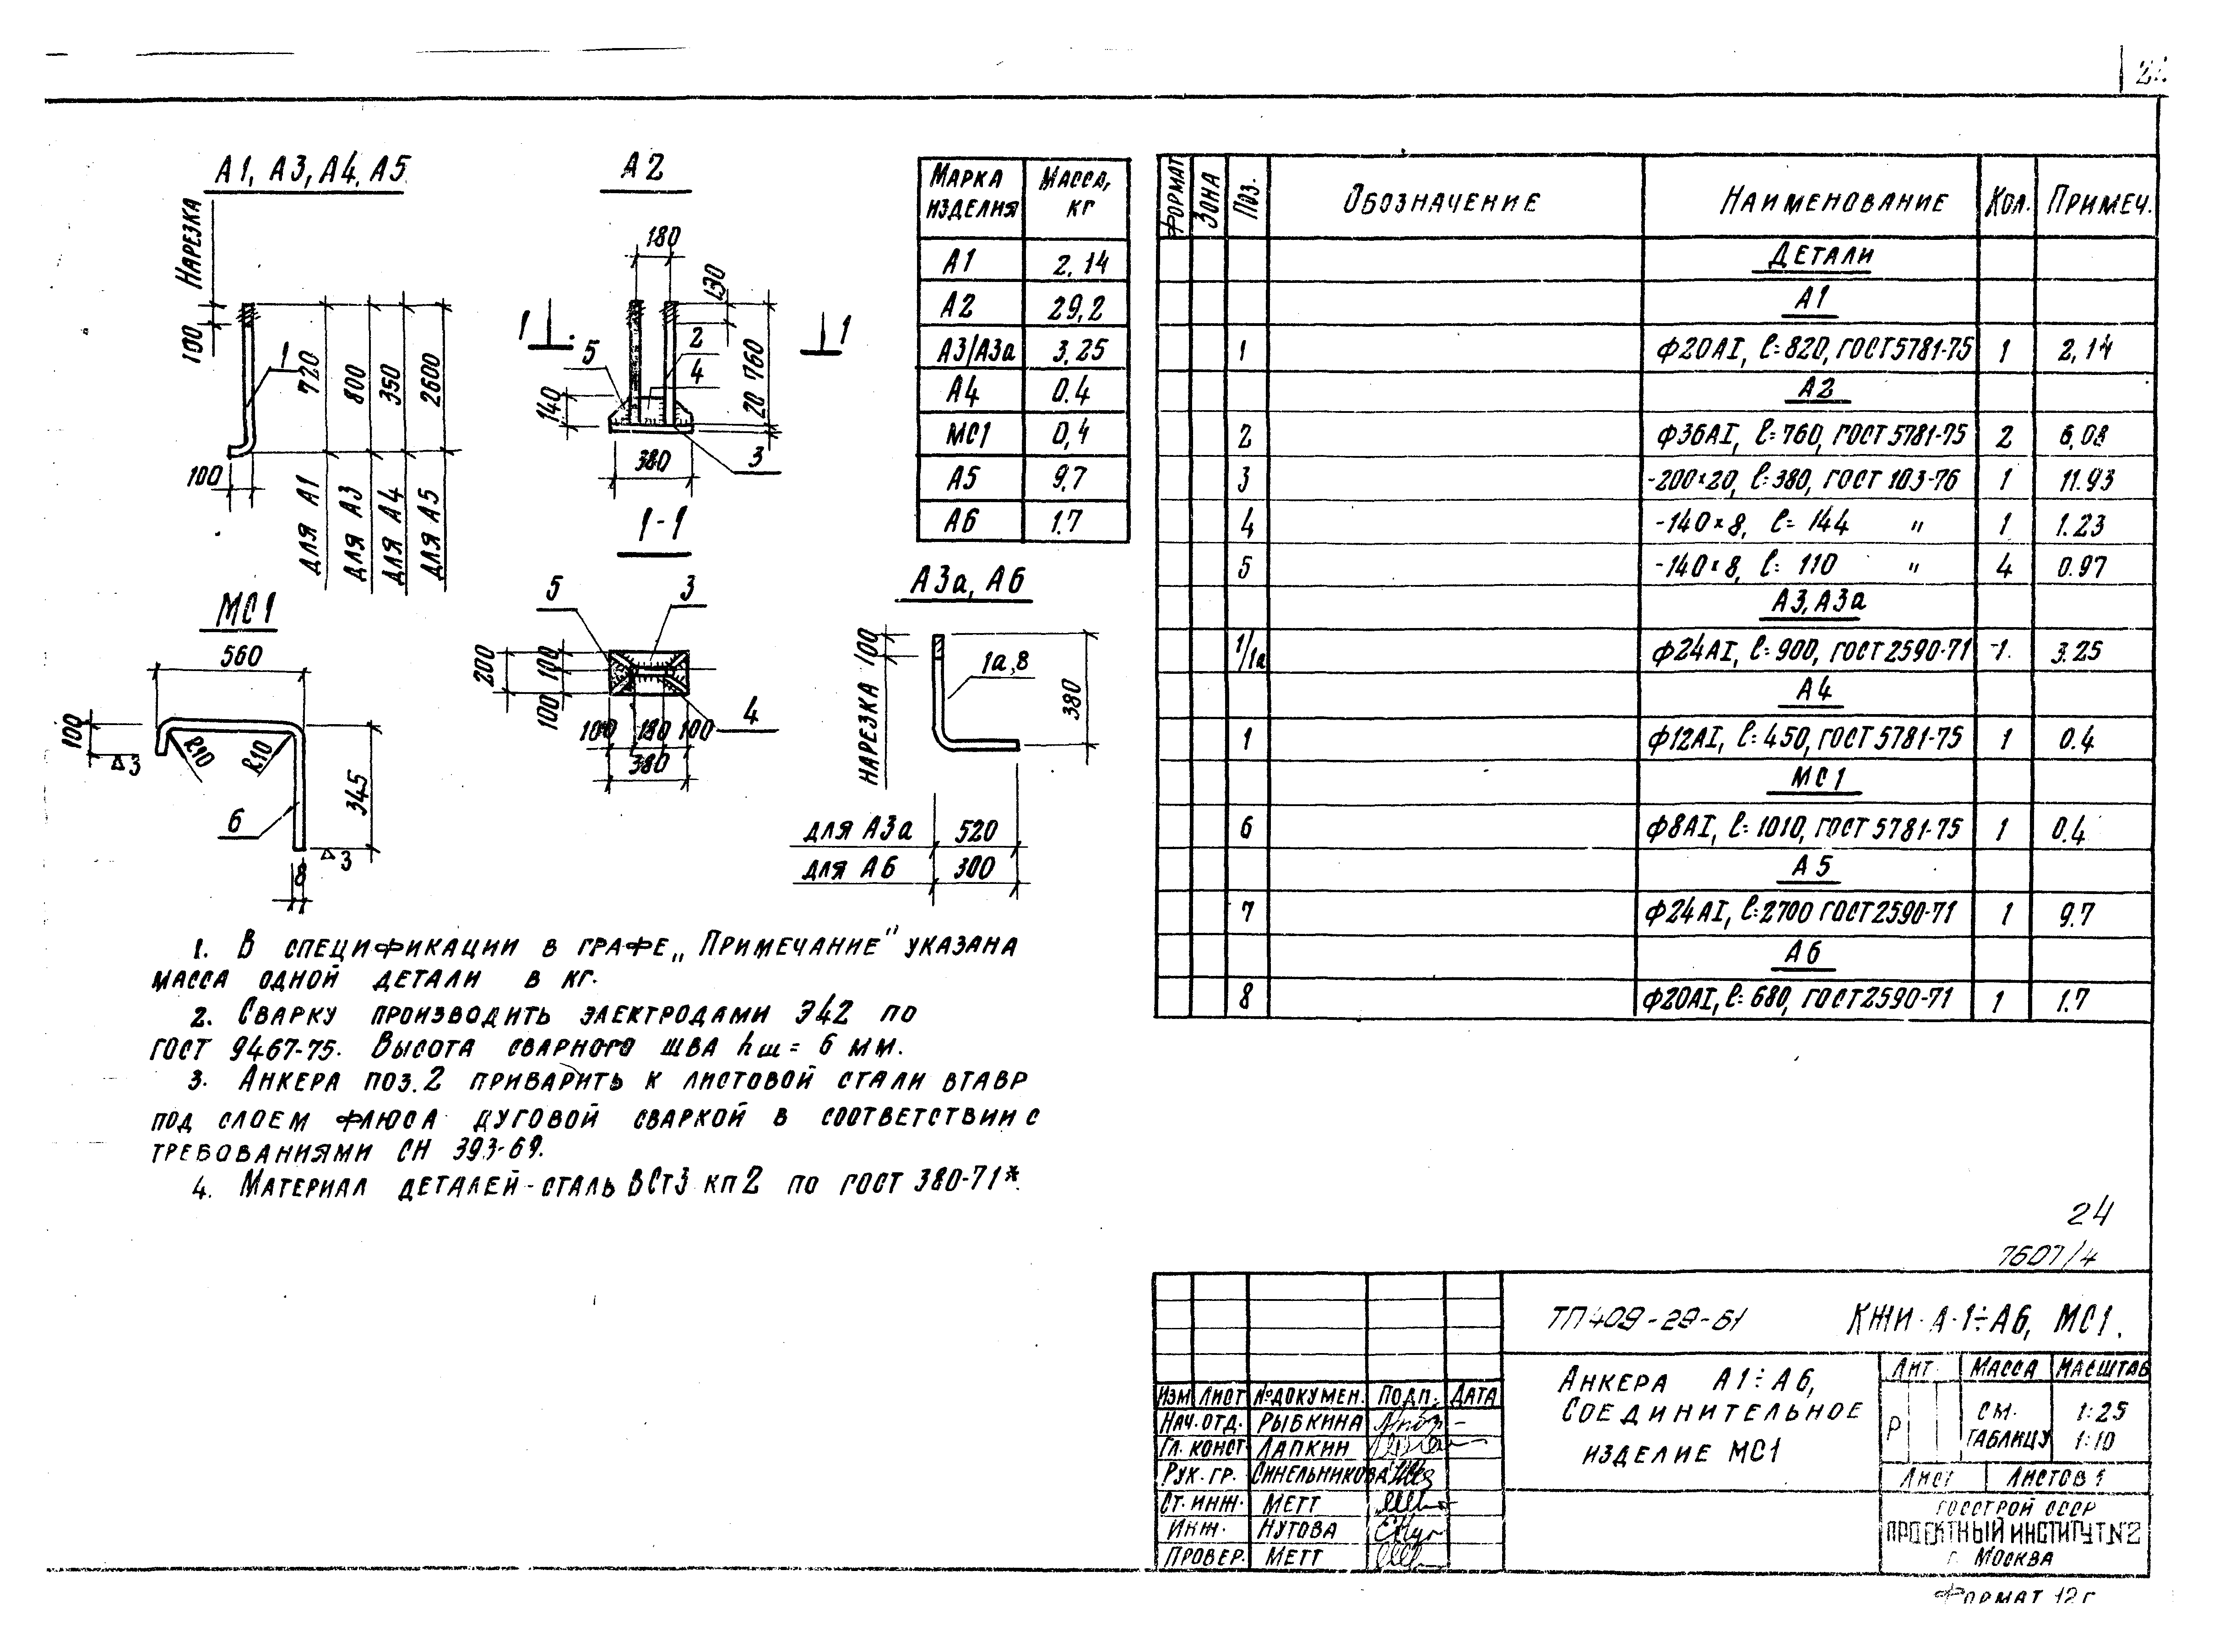 А1, А3, А4, А5
НАРЕЗКА
100
1
720
800
350
2600
100
ДЛЯ А1
ДЛЯ А3
ДЛЯ А4
ДЛЯ А5
А2
180
130
1
1
5
2
4
140
20 760
380
3
1-1
5
3
200
100
100
4
100 180 100
380
МС1
560
100
R10
R10
△3
6
345
△3
8
МАРКА ИЗДЕЛИЯ МАССА, КГ
А1 2,14
А2 29,2
А3/А3а 3.25
А4 0.4
МС1 0,4
А5 9,7
А6 1.7
А3а, А6
НАРЕЗКА 100
1а,8
380
ДЛЯ А3а 520
ДЛЯ А6 300
1. В СПЕЦИФИКАЦИИ В ГРАФЕ „ПРИМЕЧАНИЕ" УКАЗАНА
МАССА ОДНОЙ ДЕТАЛИ В КГ.
2. СВАРКУ ПРОИЗВОДИТЬ ЭЛЕКТРОДАМИ Э42 ПО
ГОСТ 9467-75. ВЫСОТА СВАРНОГО ШВА hш = 6 ММ.
3. АНКЕРА ПОЗ.2 ПРИВАРИТЬ К ЛИСТОВОЙ СТАЛИ ВТАВР
ПОД СЛОЕМ ФЛЮСА ДУГОВОЙ СВАРКОЙ В СООТВЕТСТВИИ С
ТРЕБОВАНИЯМИ СН 393-69.
4. МАТЕРИАЛ ДЕТАЛЕЙ - СТАЛЬ ВСт3 кп2 ПО ГОСТ 380-71*.
ФОРМАТ ЗОНА ПОЗ. ОБОЗНАЧЕНИЕ НАИМЕНОВАНИЕ КОЛ. ПРИМЕЧ.
ДЕТАЛИ
А1
1 Ф20АI, ℓ=820, ГОСТ5781-75 1 2,14
А2
2 Ф36АI, ℓ=760, ГОСТ5781-75 2 6,08
3 -200×20, ℓ=380, ГОСТ 103-76 1 11.93
4 -140×8, ℓ= 144 " 1 1.23
5 -140×8, ℓ= 110 " 4 0.97
А3, А3а
1/1а Ф24АI, ℓ=900, ГОСТ2590-71 1 3.25
А4
1 Ф12АI, ℓ=450, ГОСТ5781-75 1 0.4
МС1
6 Ф8АI, ℓ=1010, ГОСТ5781-75 1 0.4
А5
7 Ф24АI, ℓ=2700 ГОСТ2590-71 1 9.7
А6
8 Ф20АI, ℓ=680, ГОСТ2590-71 1 1.7
24
7607/4
ТП409-29-61 КЖИ-А-1÷А6, МС1.
АНКЕРА А1÷А6,
СОЕДИНИТЕЛЬНОЕ
ИЗДЕЛИЕ МС1
ЛИТ. МАССА МАСШТАБ
Р СМ. ТАБЛИЦУ 1:25 1:10
ЛИСТ ЛИСТОВ 1
ГОССТРОЙ СССР
ПРОЕКТНЫЙ ИНСТИТУТ №2
Г. МОСКВА
ИЗМ ЛИСТ № ДОКУМЕН. ПОДП. ДАТА
НАЧ.ОТД. РЫБКИНА
ГЛ. КОНСТ. ЛАПКИН
РУК.ГР. СИНЕЛЬНИКОВА
СТ.ИНЖ. МЕТТ
ИНЖ. НУТОВА
ПРОВЕР. МЕТТ
ФОРМАТ 12Г